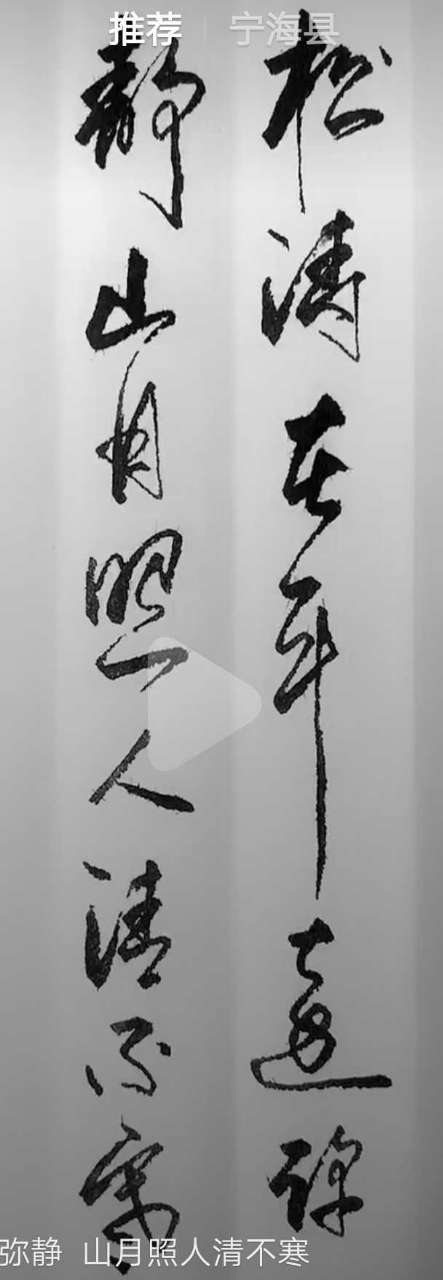 推荐 宁海县
松涛在耳声弥
静山月照人清不寒
弥静 山月照人清不寒